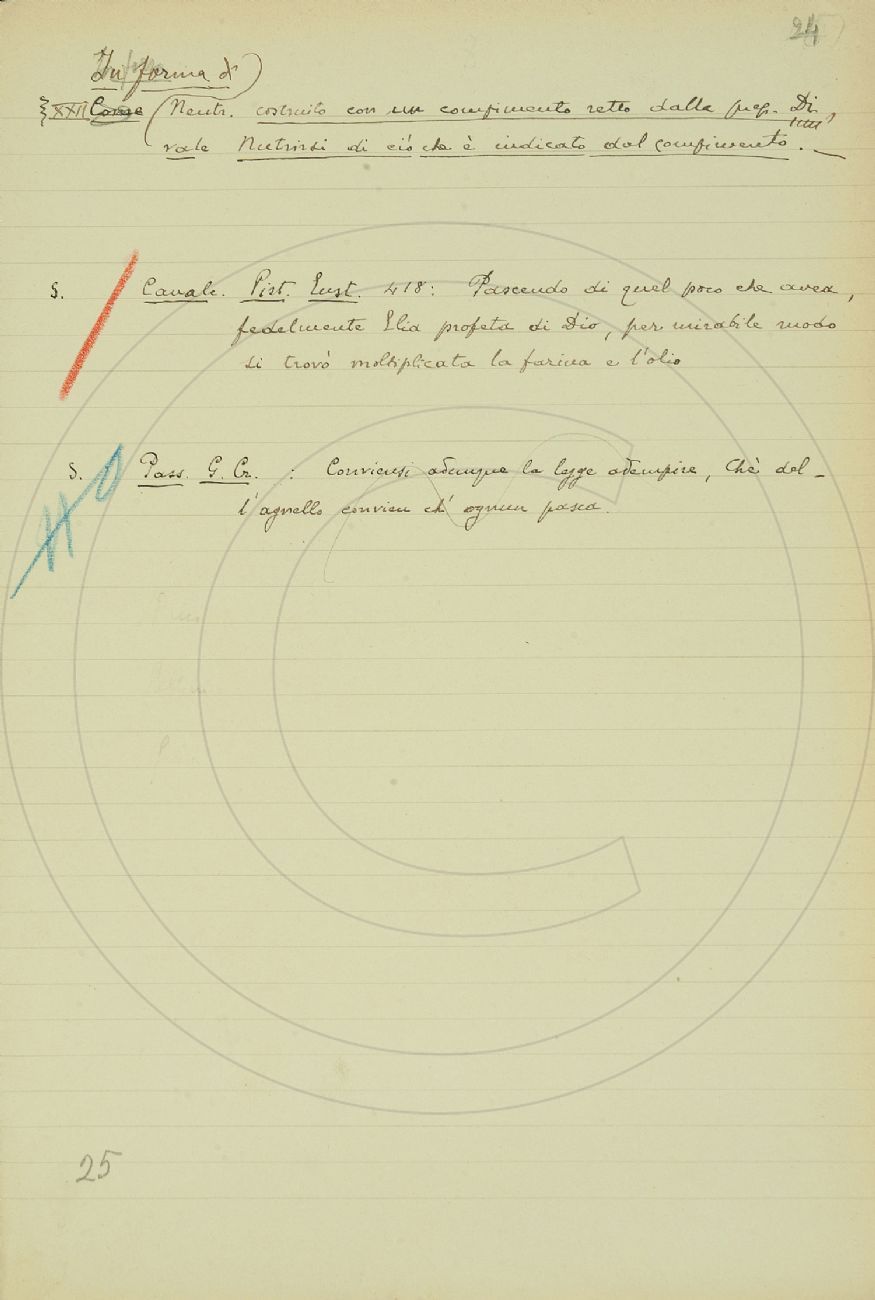 24
In forma di
XXII Come (Neutr. costruito con un compimento retto dalla prep. Di
vale Nutrirsi di ciò che è indicato dal compimento. —
S. Cavalc. Pist. Eust. 418: Pascendo di quel poco che avea,
fedelmente Elia profeta di Dio, per mirabile modo
si trovò moltiplicata la farina e l'olio
S. Pass. G. Cr. : Conviensi adunque la legge adempire, Chè del-
l'agnello convien ch' ognun pasca.
25